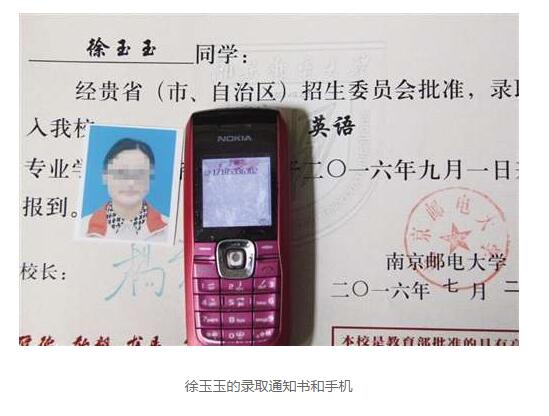 徐玉玉 同学:
经贵省（市、自治区）招生委员会批准，录
入我校 英语
专业学 二〇一六年九月一日
报到。
NOKIA
南京邮电大学
校长:
二〇一六年 七 月
京邮电大学
本校是教育部批准的具有
徐玉玉的录取通知书和手机